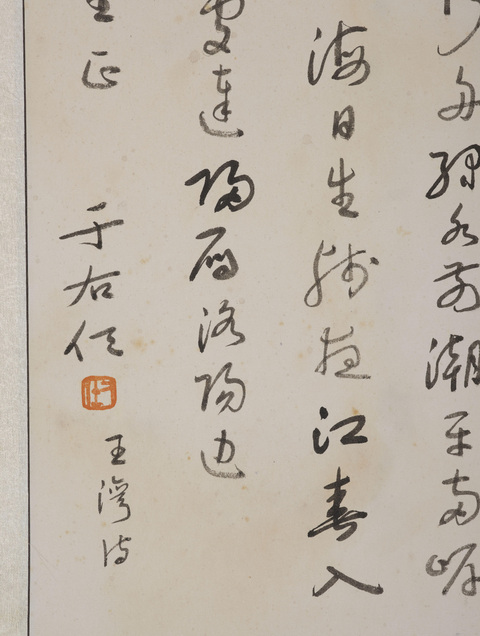 行舟綠水前潮平兩岸
海日生殘夜江春入
處達歸雁洛陽邊
生正
于右任
王灣詩